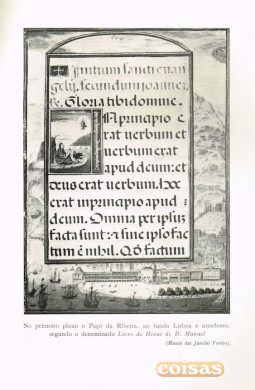 Initium sancti euan
gelij. secundum joannez.
Gloria tibi domine.
A principio e
rat verbum et
verbum erat
apud deum: et
deus erat verbum. Hoc
erat in principio apud
deum. Omnia per ipsuz
facta sunt: & sine ipso fac
tum ē nihil. Q factum
No primeiro plano o Paço da Ribeira, ao fundo Lisboa e arredores,
segundo o denominado Livro de Horas de D. Manuel
(Museu das Janelas Verdes).
coisas